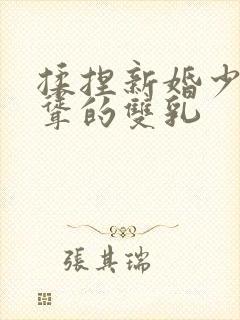 揉捏新婚少
聳的雙乳
張其瑞